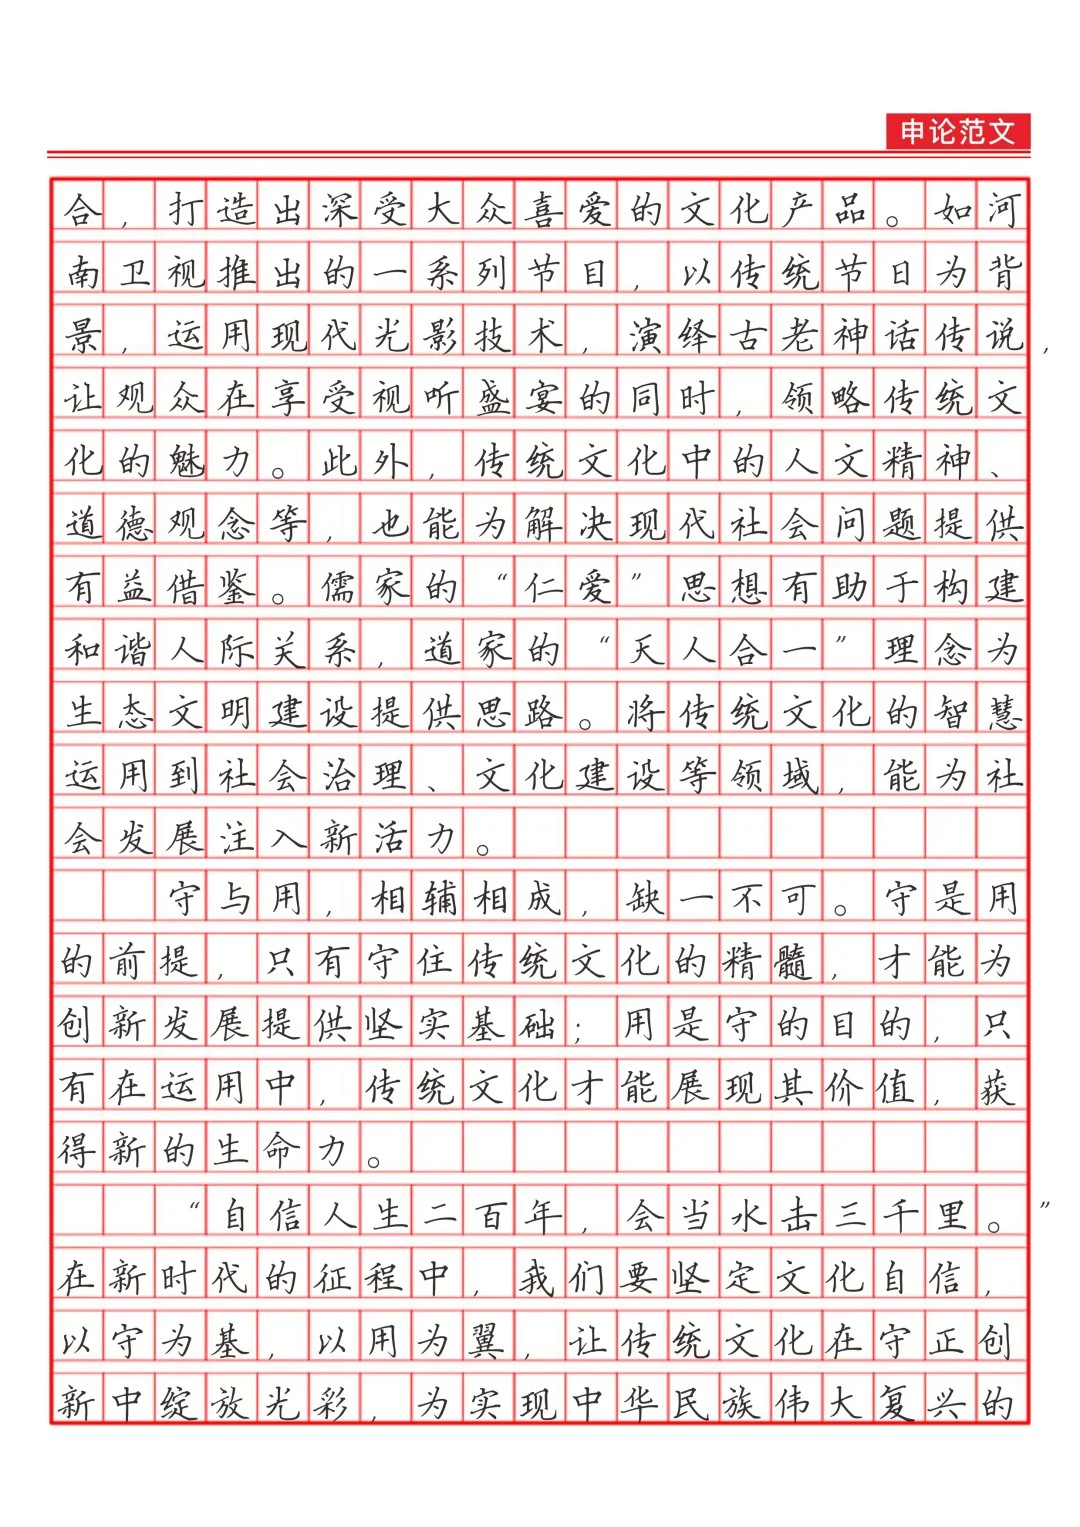 申论范文
合，打造出深受大众喜爱的文化产品。如河
南卫视推出的一系列节目，以传统节日为背
景，运用现代光影技术，演绎古老神话传说，
让观众在享受视听盛宴的同时，领略传统文
化的魅力。此外，传统文化中的人文精神、
道德观念等，也能为解决现代社会问题提供
有益借鉴。儒家的“仁爱”思想有助于构建
和谐人际关系，道家的“天人合一”理念为
生态文明建设提供思路。将传统文化的智慧
运用到社会治理、文化建设等领域，能为社
会发展注入新活力。
守与用，相辅相成，缺一不可。守是用
的前提，只有守住传统文化的精髓，才能为
创新发展提供坚实基础；用是守的目的，只
有在运用中，传统文化才能展现其价值，获
得新的生命力。
“自信人生二百年，会当水击三千里。”
在新时代的征程中，我们要坚定文化自信，
以守为基，以用为翼，让传统文化在守正创
新中绽放光彩，为实现中华民族伟大复兴的